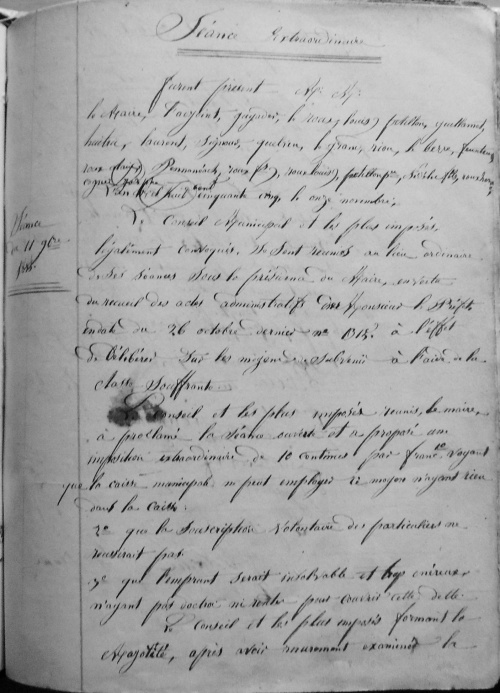 Séance Extraordinaire
furent présent M. M.
le Maire, l'adjoint, le roux, louis, guillamet,
laurent, quelven, le grand, riou, le berre,
Pennanéach, roux
L'an mil huit cent cinquante cinq, le onze novembre,
Séance
du 11 9bre
1855
Le Conseil Municipal et les plus imposés,
légalement convoqués, se sont réunis au lieu ordinaire
de ses séances sous la présidence du Maire, en vertu
du recueil des actes administratifs de Monsieur le Préfet
en date du 26 octobre dernier no 1313 à l'effet
de Délibérer Sur les moyens de Subvenir à l'aide de la
classe Souffrante.
Le Conseil et les plus imposés réunis, le maire,
à proclamé la Séance ouverte et a proposé une
imposition extraordinaire de 10 centimes par franc 1o voyant
que la caisse municipale ne peut employer ce moyen n'ayant rien
dans la Caisse.
2o que la Souscription Volontaire des particuliers ne
reusserait pas.
3o que l'emprunt serait insolvable et trop onéreux,
n'ayant pas ni rente pour couvrir cette dette.
Le Conseil et les plus imposés formant la
Majorité, après avoir murement examiner la